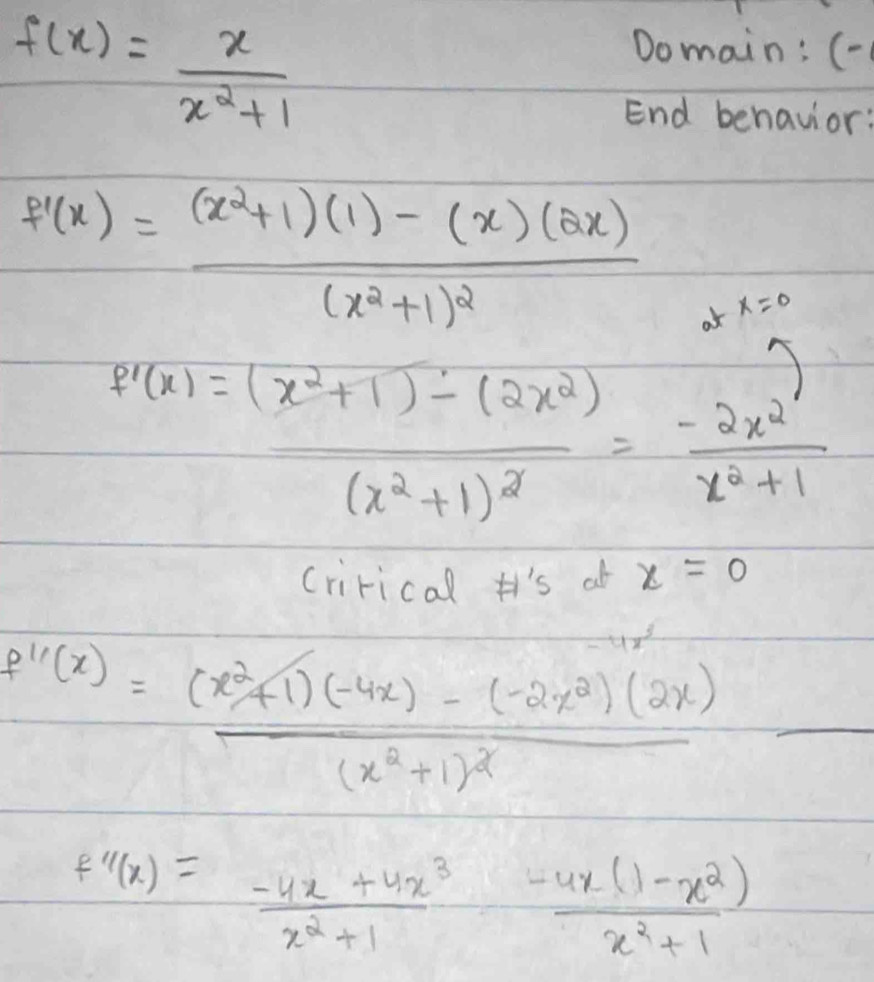 f(x) = x / (x²+1) Domain: (-
End behavior:
f'(x) = ((x²+1)(1) - (x)(2x)) / (x²+1)²
at x=0
f'(x) = ((x²+1) - (2x²)) / (x²+1)² = -2x² / (x²+1)
Critical #'s at x = 0
-4x³
f''(x) = ((x²+1)(-4x) - (-2x²)(2x)) / (x²+1)²
f''(x) = (-4x + 4x³) / (x²+1) -4x(1-x²) / (x²+1)